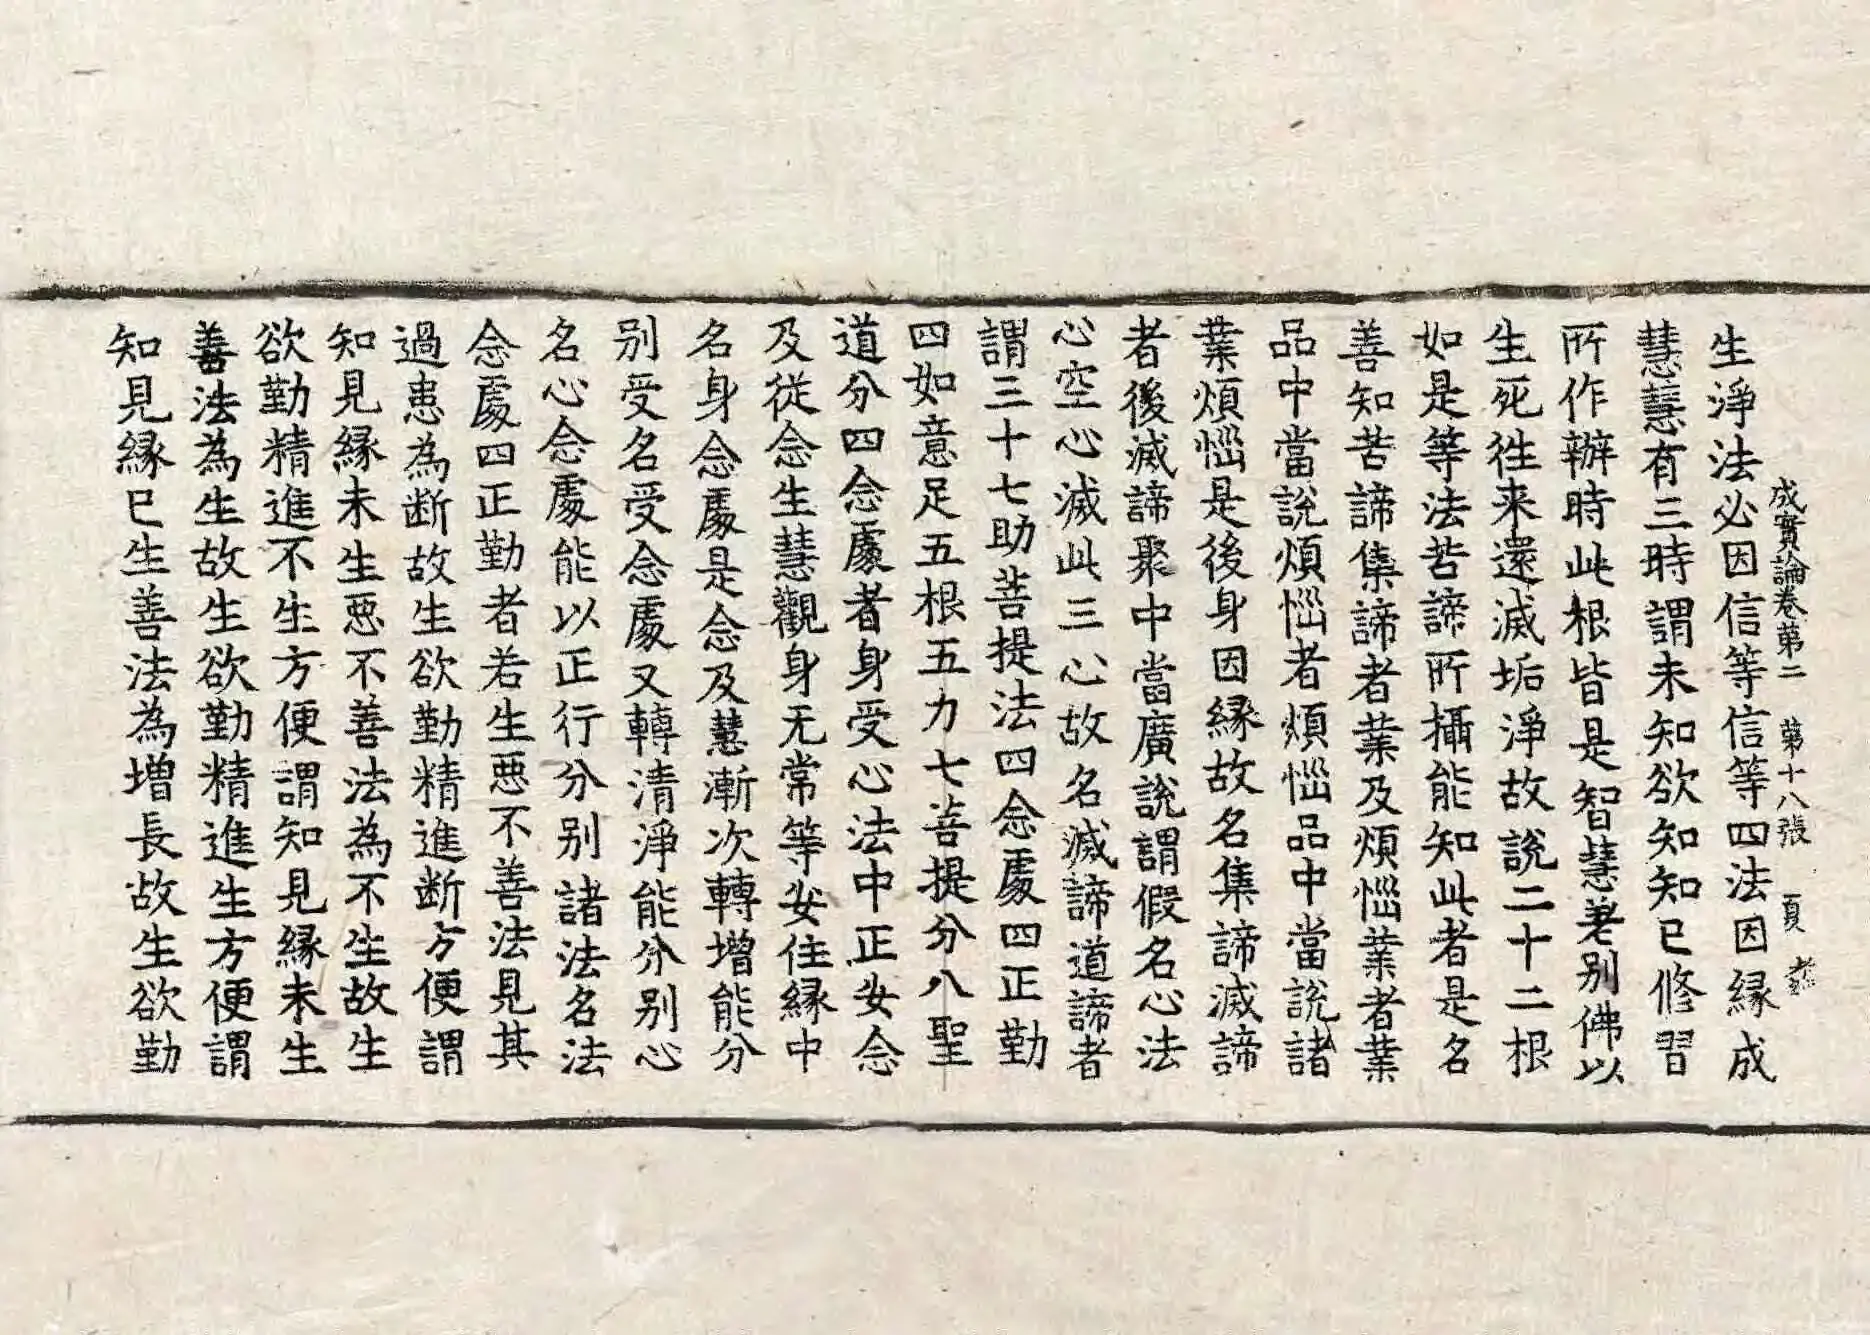 成實論卷第二　第十八張　夏
生淨法必因信等信等四法因縁成
慧慧有三時謂未知欲知知已修習
所作辦時此根皆是智慧差别佛以
生死徃来還滅垢淨故說二十二根
如是等法苦諦所攝能知此者是名
善知苦諦集諦者業及煩惱業者業
品中當說煩惱者煩惱品中當說諸
業煩惱是後身因縁故名集諦滅諦
者後滅諦聚中當廣說謂假名心法
心空心滅此三心故名滅諦道諦者
謂三十七助菩提法四念處四正勤
四如意足五根五力七菩提分八聖
道分四念處者身受心法中正安念
及從念生慧觀身无常等安住縁中
名身念處是念及慧漸次轉增能分
别受名受念處又轉清淨能分别心
名心念處能以正行分别諸法名法
念處四正勤者若生惡不善法見其
過患為断故生欲勤精進断方便謂
知見縁未生惡不善法為不生故生
欲勤精進不生方便謂知見縁未生
善法為生故生欲勤精進生方便謂
知見縁已生善法為增長故生欲勤